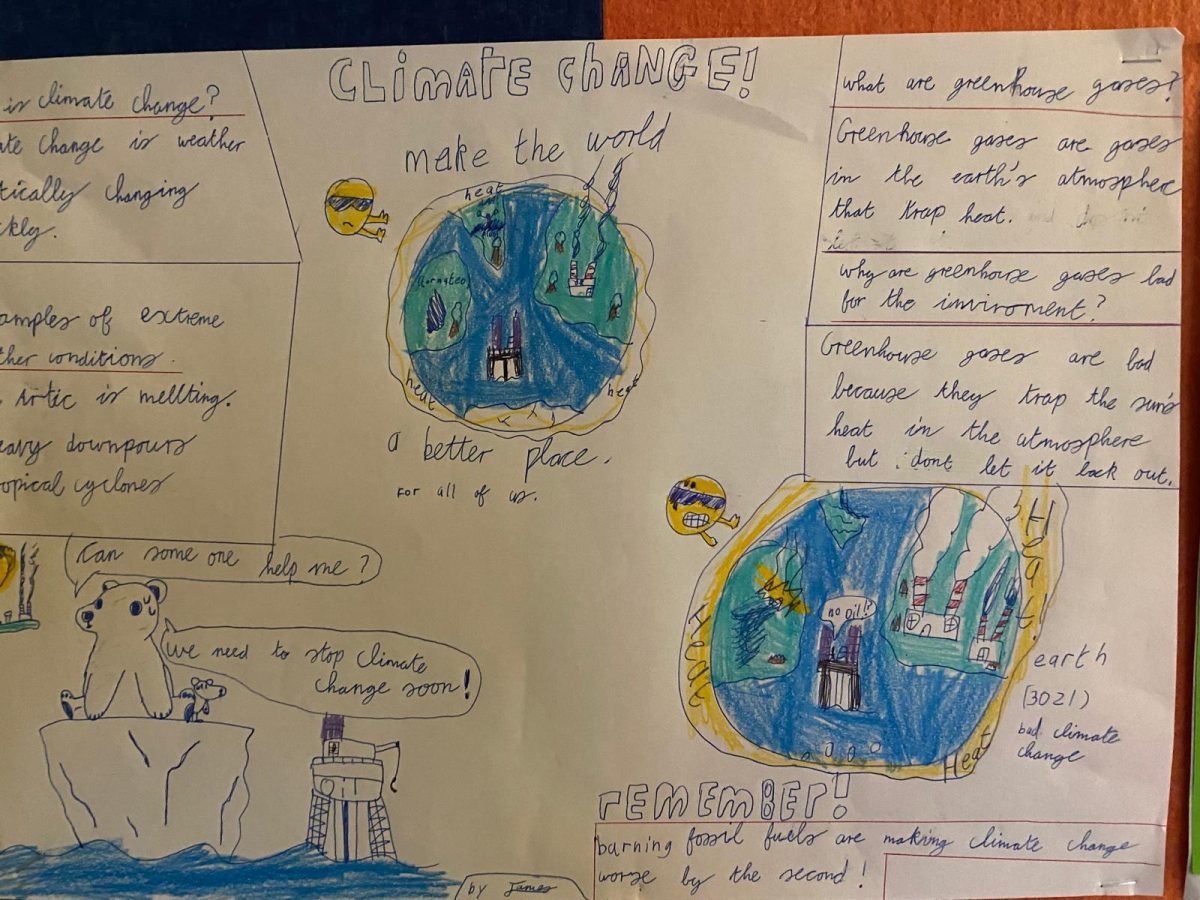 CLIMATE CHANGE!
is climate change?
ate change is weather
tically changing
kly.
amples of extreme
ther conditions.
Artic is mellting.
eavy downpours
opical cyclones
make the world
heat
heat
heat
a better place.
For all of us.
what are greenhouse gases?
Greenhouse gases are gases
in the earth's atmosphere
that trap heat.
why are greenhouse gases bad
for the inviroment?
Greenhouse gases are bad
because they trap the sun's
heat in the atmosphere
but dont let it back out.
Can some one help me?
We need to stop climate
change soon!
Heat
Heat
Heat
no oil!?
earth
(3021)
bad climate
change
REMEMBER!
burning fossil fuels are making climate change
worse by the second!
by James